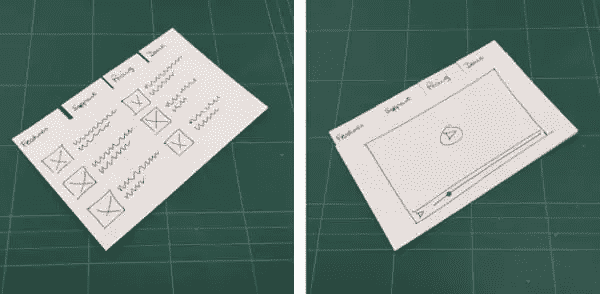 Features
Support
Pricing
Demo
Features
Support
Pricing
Demo